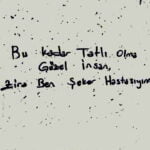 Bu kadar Tatlı Olma
Güzel İnsan,
Zira Ben Şeker Hastasıyım